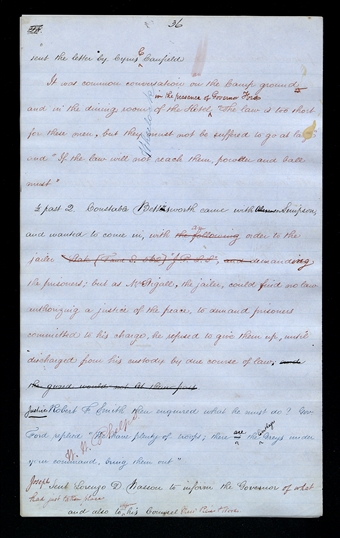 36
sent the letter by Cyrus E Canfield
It was common conversation on the Camp ground
in the presence of Governor Ford
and in the dining room of the Hotel, "The law is too short
for these men, but they must not be suffered to go at large
and "If the law will not reach them, powder and ball
must"
½ past 2. Constable Bettisworth came with Simpson,
and wanted to come in, with an the following order to the
jailer demanding
the prisoners; but as Mr Stigall, the jailer, could find no law
authorizing a justice of the peace, to demand prisoners
committed to his charge, he refused to give them up, until
discharged from his custody by due course of law,
the guard would not let them pass
Justice Robert F. Smith then enquired what he must do? Gov
Ford replied "We have plenty of troops; there are the Greys under
your command, bring them out"
Joseph sent Lorenzo D. Wasson to inform the Governor of what
had just taken place
and also to his Counsel